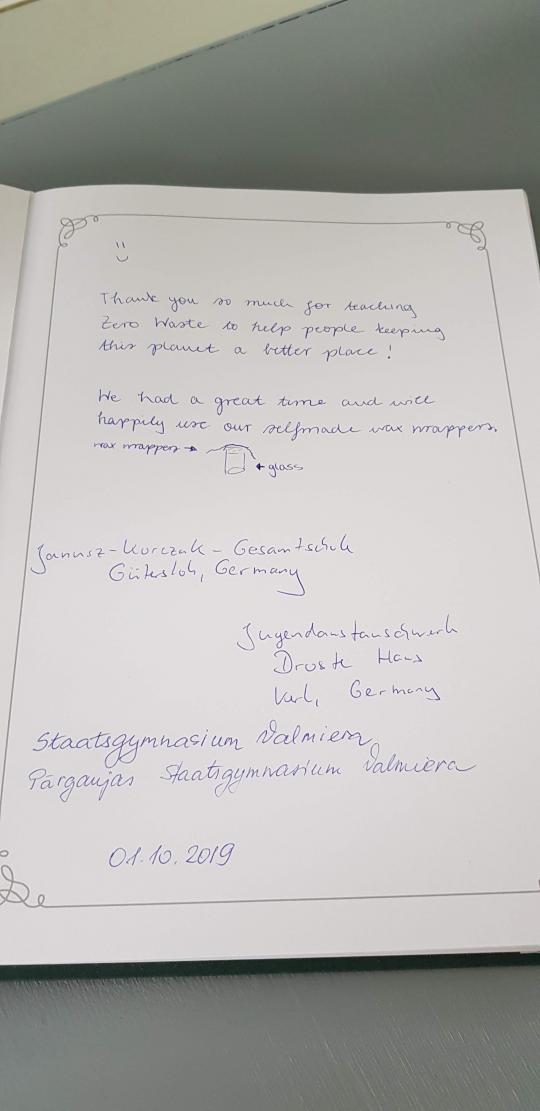 Thank you so much for teaching
Zero Waste to help people keeping
this planet a better place!
We had a great time and will
happily use our selfmade wax wrappers.
wax wrapper → 
← glass
Janusz-Korczak-Gesamtschule
Gütersloh, Germany
Jugendaustauschwerk
Droste Haus
Verl, Germany
Staatsgymnasium Valmiera
Pārgaujas Staatsgymnasium Valmiera
01.10.2019